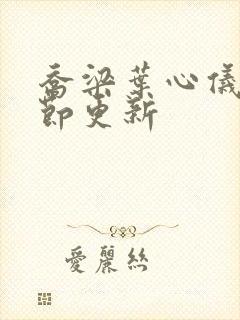 喬梁葉心儀
節更新
愛麗絲